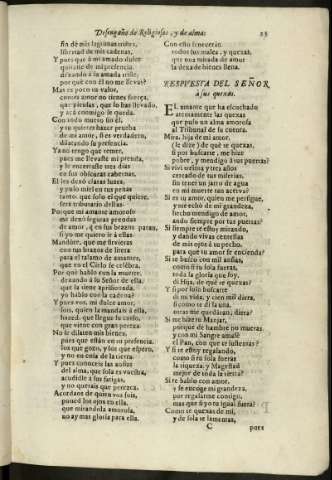 Desengaño de Religiosas, y de almas
fin dè mis lagrimas tristes,
libertad de mis cadenas,
Y pues que à mi amado dulce
quitaste de mi presencia
dexando à tu amada triste,
por què con èl no me llevas?
Mas es poco mi valor,
contra amor no tienes fuerça,
que puedas, que lo has llevado,
y acà conmigo se queda.
Con todo muero sin èl,
y tu quieres hazer prueba
de mi amor, si es verdadero,
dilatando su presencia.
Ya no tengo que temer,
pues me llevaste mi prenda,
y le encerraste tres dias
en tus obscuras cabernas.
El les dexò claras luzes,
y puso miel en tus penas
tanto, que solo el que quiere,
serà tributario dellas.
Por que mi amante amoroso
me dexò seguras prendas
de amor, q en sus braços paran,
si yo me quiero ir à ellas.
Mandòte, que me sirvieras
con tus brazos de litera
para el talamo de amantes,
que en el Cielo se celebra.
Por què hablo con la muerte,
dexando à su Señor de ella,
que la tiene aprisionada,
yo hablo con la cadena?
Y pues vos, mi dulce amor,
sois, quien la mandais à ella,
hazed, que llegue su curso,
que viene con gran pereza.
No se dilaten mis bienes,
pues que estàn en su presencia,
los que gozo, y los que espero,
y no en cosa de la tierra.
Y pues conoceis las ansias
del alma, que sola es vuestra,
acudidle à sus fatigas,
no querais que perezca.
Acordaos de quien vos sois,
poned los ojos en ella,
que mirandola amorosa,
no ay mas gloria para ella.
Con esso fenecerán
todos sus males, y quexas,
que una mirada de amor
la dexa de bienes llena.
RESPUESTA DEL SEÑOR
à sus quexas.
EL amante que ha escuchado
atentamente las quexas
que puso un alma amorosa
al Tribunal de su cuenta.
Mira, hija de mi amor,
(le dize) de què te quexas,
si por buscarte, me hize
pobre, y mendigo à tus puertas?
Si viví treinta y tres años
cercado de tus miserias,
sin tener un jarro de agua
en mi muerte tan acerva?
Si es tu amor, quien me persigue,
y me echò de mi grandeza,
hecho mendigo de amor,
ando siempre por tus puertas?
Si siempre te estoy mirando,
y dando de vivas centellas
de mis ojos à tu pecho,
para que tu amor se encienda?
Si te busco con mil ansias,
como si tu sola fueras,
toda la gloria que soy,
di Hija, de què te quexas?
Y si por solo buscarte
di mi vida, y cien mil diera,
si como te di la una,
otras me quedàran, diera?
Si me hize tu Manjar,
porque de hambre no mueras,
y con mi Sangre amasè
el Pan, con que te sustentas?
Y si te estoy regalando,
como si tu sola fueras
la riqueza, y Magestad
mejor de toda la tierra?
Si te hablo con amor,
y se encoge mi grandeza,
por regalarme contigo,
mas que si yo tu igual fuera?
Como te quexas de mi,
y de sola te lamentas,
C
pues